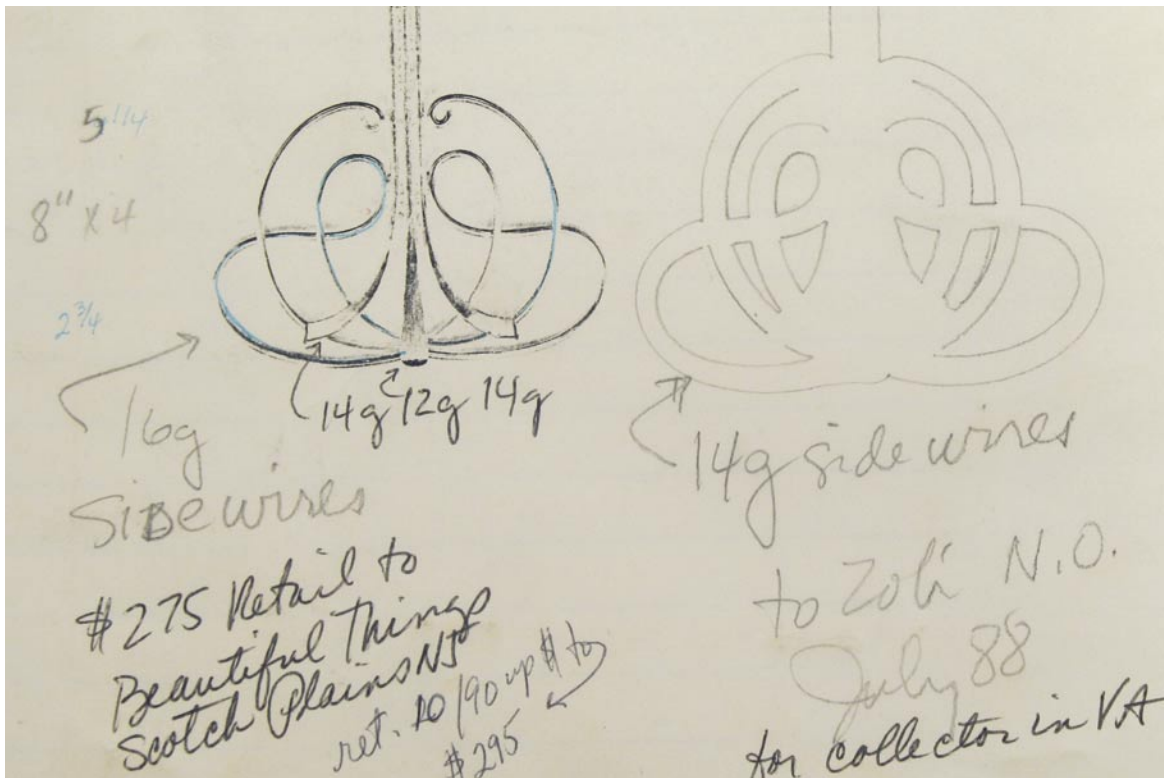 5 1/4
8" x 4
2 3/4
16g
Side wires
14g 12g 14g
14g side wires
$275 Retail to
Beautiful Things
Scotch Plains NJ
ret. 10/90 up $ to
$295
to Zoli N.O.
July 88
for collector in VA